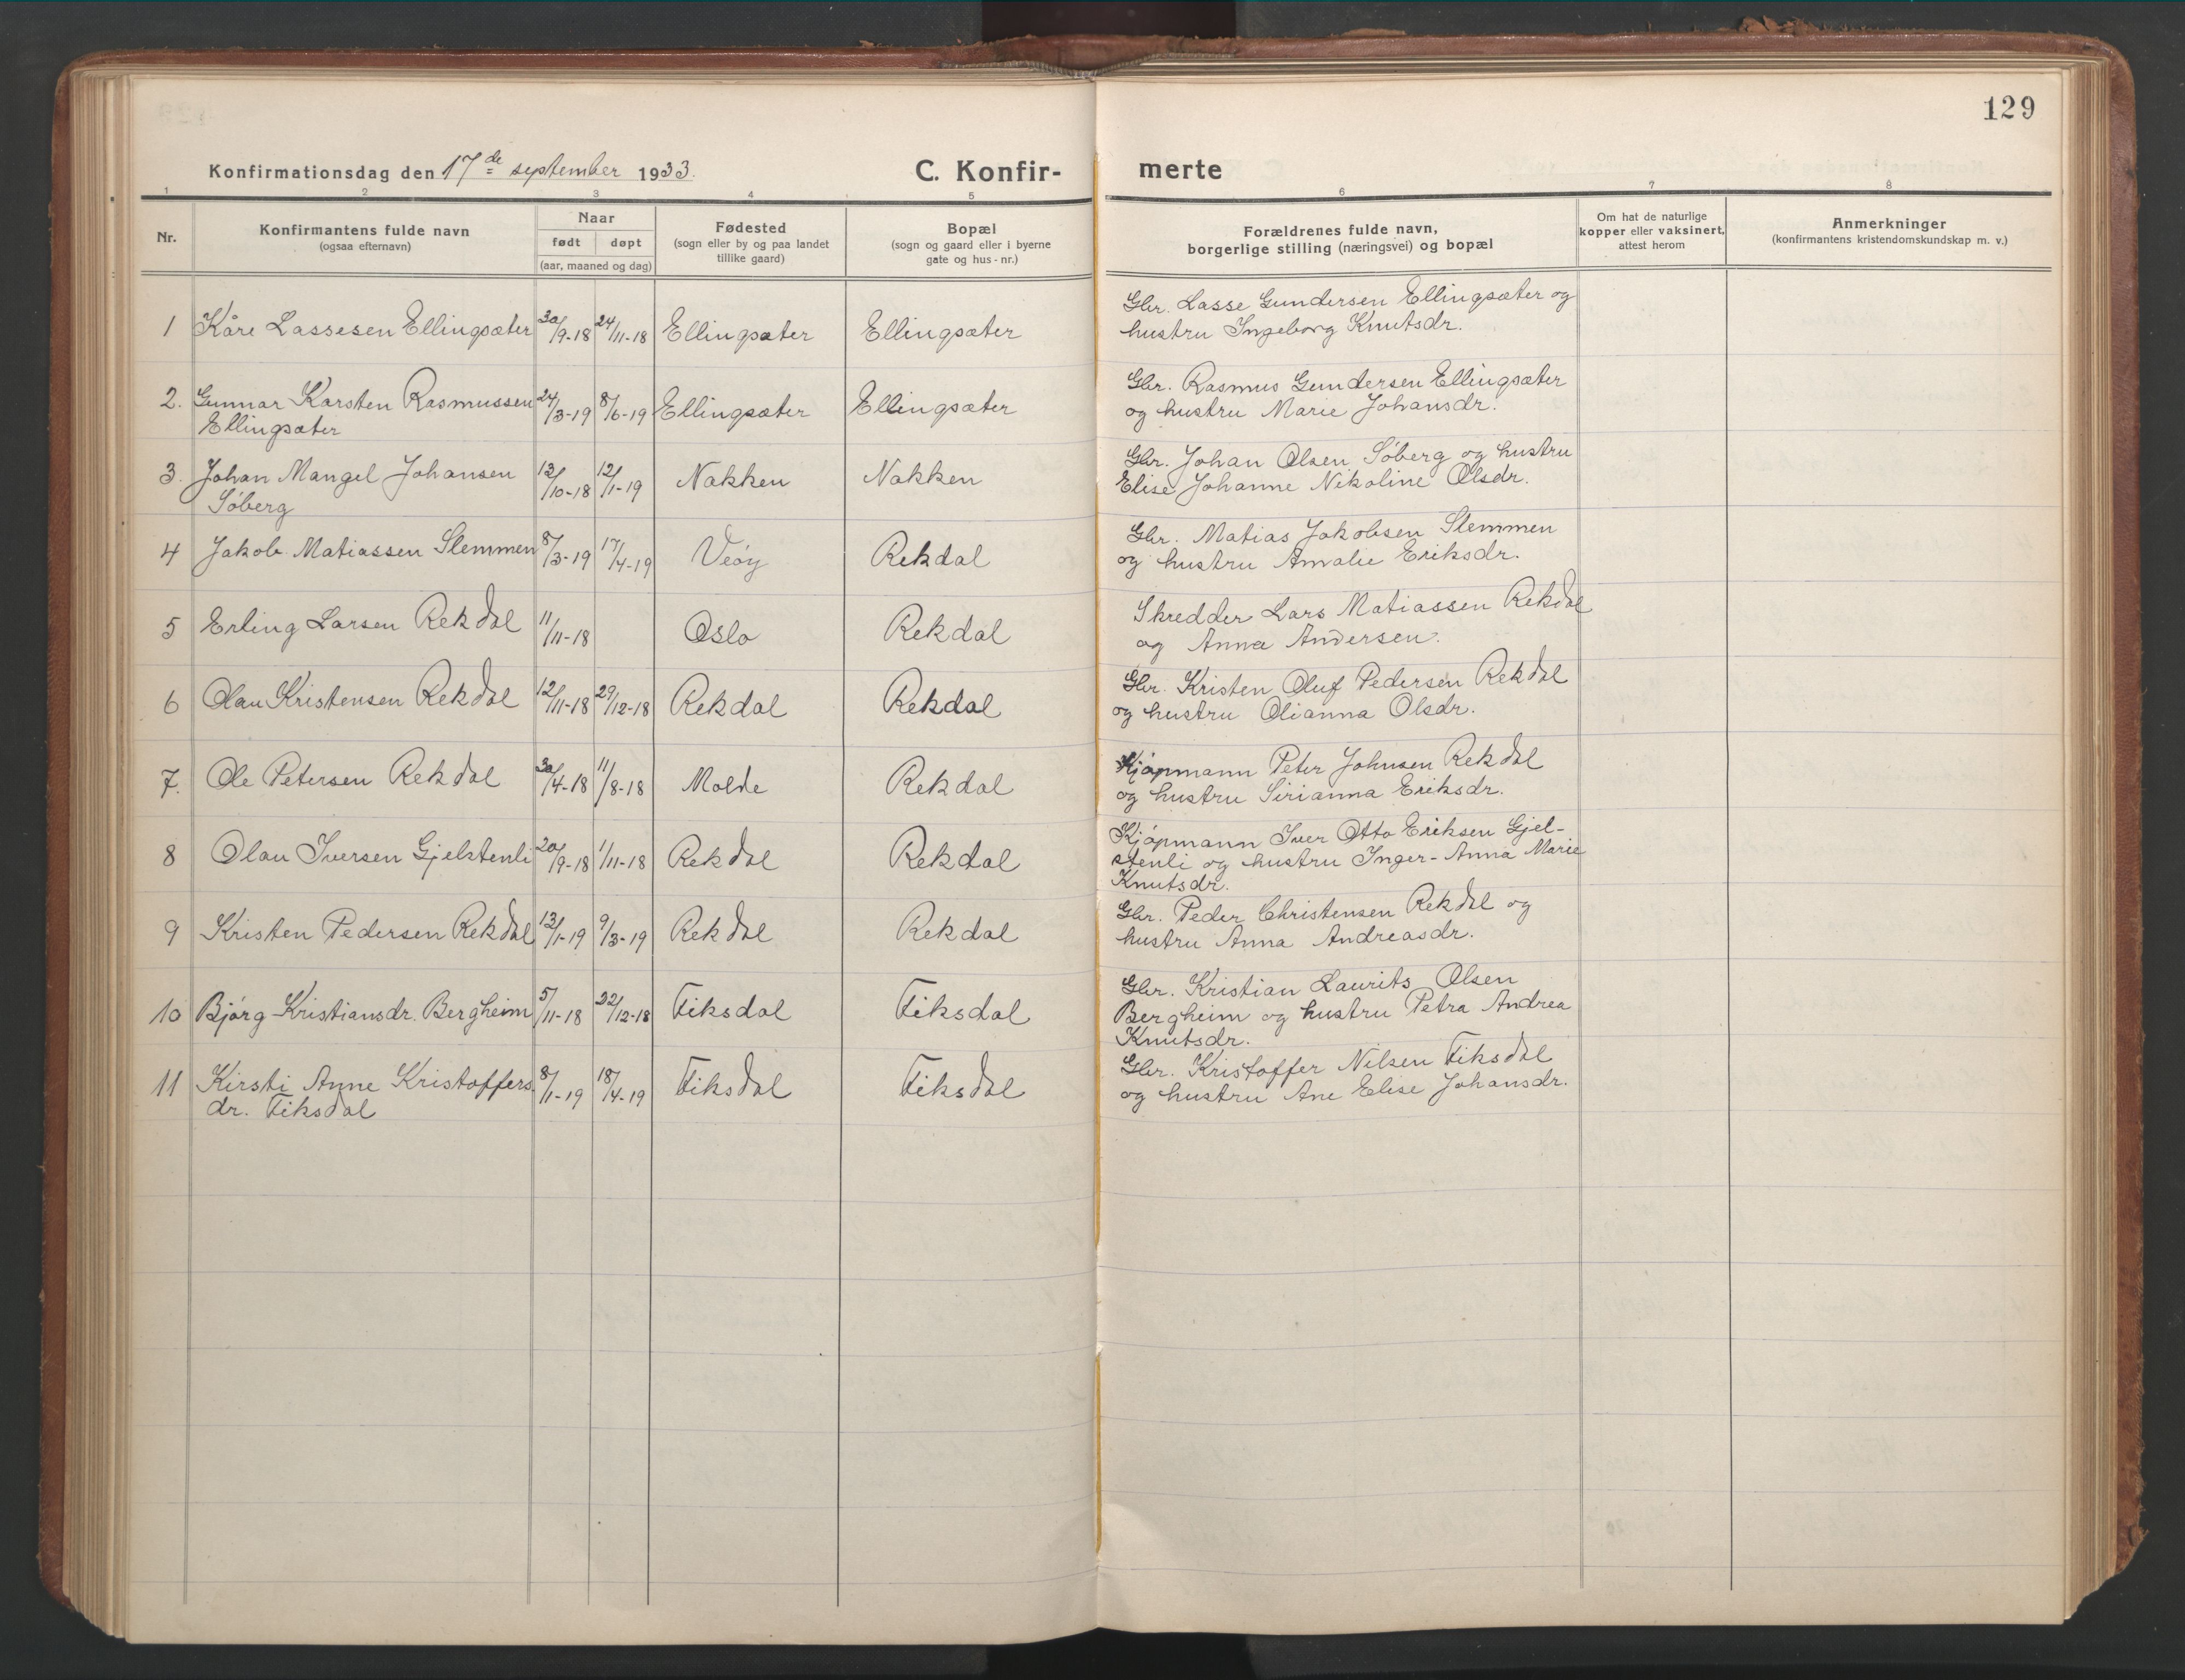 129
Konfirmationsdag den 17de september 1933.
C. Konfir-
merte
1 2 3 4 5 6 7 8
Nr.
Konfirmantens fulde navn
(ogsaa efternavn)
Naar
født døpt
(aar, maaned og dag)
Fødested
(sogn eller by og paa landet
tillike gaard)
Bopæl
(sogn og gaard eller i byerne
gate og hus-nr.)
Forældrenes fulde navn,
borgerlige stilling (næringsvei) og bopæl
Om hat de naturlige
kopper eller vaksinert,
attest herom
Anmerkninger
(konfirmantens kristendomskundskap m. v.)
1 Kåre Lassesen Ellingsæter 30/9-18 24/11-18 Ellingsæter Ellingsæter
Gbr. Lasse Gundersen Ellingsæter og
hustru Ingeborg Knutsdr.
2. Gunnar Karsten Rasmussen 24/3-19 8/6-19 Ellingsæter Ellingsæter
Ellingsæter
Gbr. Rasmus Gundersen Ellingsæter
og hustru Marie Johansdr.
3. Johan Mangel Johansen 13/10-18 12/1-19 Nakken Nakken
Søberg
Gbr. Johan Olsen Søberg og hustru
Elise Johanne Nikoline Olsdr.
4 Jakob Matiassen Slemmen 8/3-19 17/4-19 Veøy Rekdal
Gbr. Matias Jakobsen Slemmen
og hustru Amalie Eriksdr.
5 Erling Larsen Rekdal 11/11-18 Oslo Rekdal
Skredder Lars Matiassen Rekdal
og Anna Andersen.
6 Olau Kristensen Rekdal 12/11-18 29/12-18 Rekdal Rekdal
Gbr. Kristen Oluf Pedersen Rekdal
og hustru Olianna Olsdr.
7. Ole Petersen Rekdal 30/4-18 11/8-18 Molde Rekdal
Kjøpmann Peter Johnsen Rekdal
og hustru Sirianna Eriksdr.
8 Olau Iversen Gjelstenli 20/9-18 1/11-18 Rekdal Rekdal
Kjøpmann Iver Otto Eriksen Gjel-
stenli og hustru Inger-Anna Marie
Knutsdr.
9 Kristen Pedersen Rekdal 13/1-19 9/3-19 Rekdal Rekdal
Gbr. Peder Christensen Rekdal og
hustru Anna Andreasdr.
10 Bjørg Kristiansdr. Bergheim 5/11-18 22/12-18 Fiksdal Fiksdal
Gbr. Kristian Laurits Olsen
Bergheim og hustru Petra Andrea
Knutsdr.
11 Kirsti Anne Kristoffers 8/1-19 18/4-19 Fiksdal Fiksdal
dr. Fiksdal
Gbr. Kristoffer Nilsen Fiksdal
og hustru Ane Elise Johansdr.